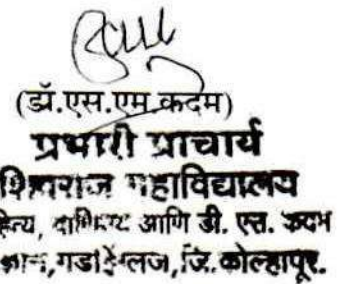 (डॉ.एस.एम.कदम)
प्रभारी प्राचार्य
शिवराज महाविद्यालय
आणि डी. एस. कदम
गडहिंग्लज,जि.कोल्हापूर.